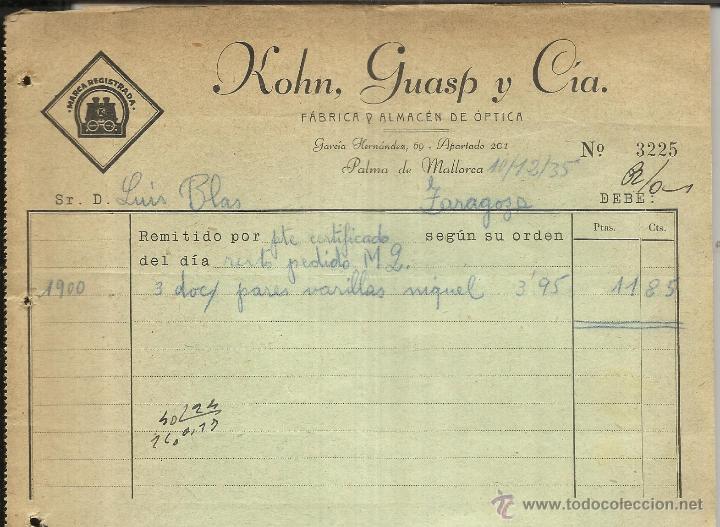 MARCA REGISTRADA
Kohn, Guasp y Cía.
FÁBRICA Y ALMACÉN DE ÓPTICA
García Hernández, 69 - Apartado 201
Nº 3225
Palma de Mallorca 10/12/35
Sr. D. Luis Blas Zaragoza DEBE:
Ptas. Cts.
Remitido por pte certificado según su orden
del día resto pedido M 2.
1900 3 doc/ pares varillas niquel 3'95 11 85
© www.todocoleccion.net